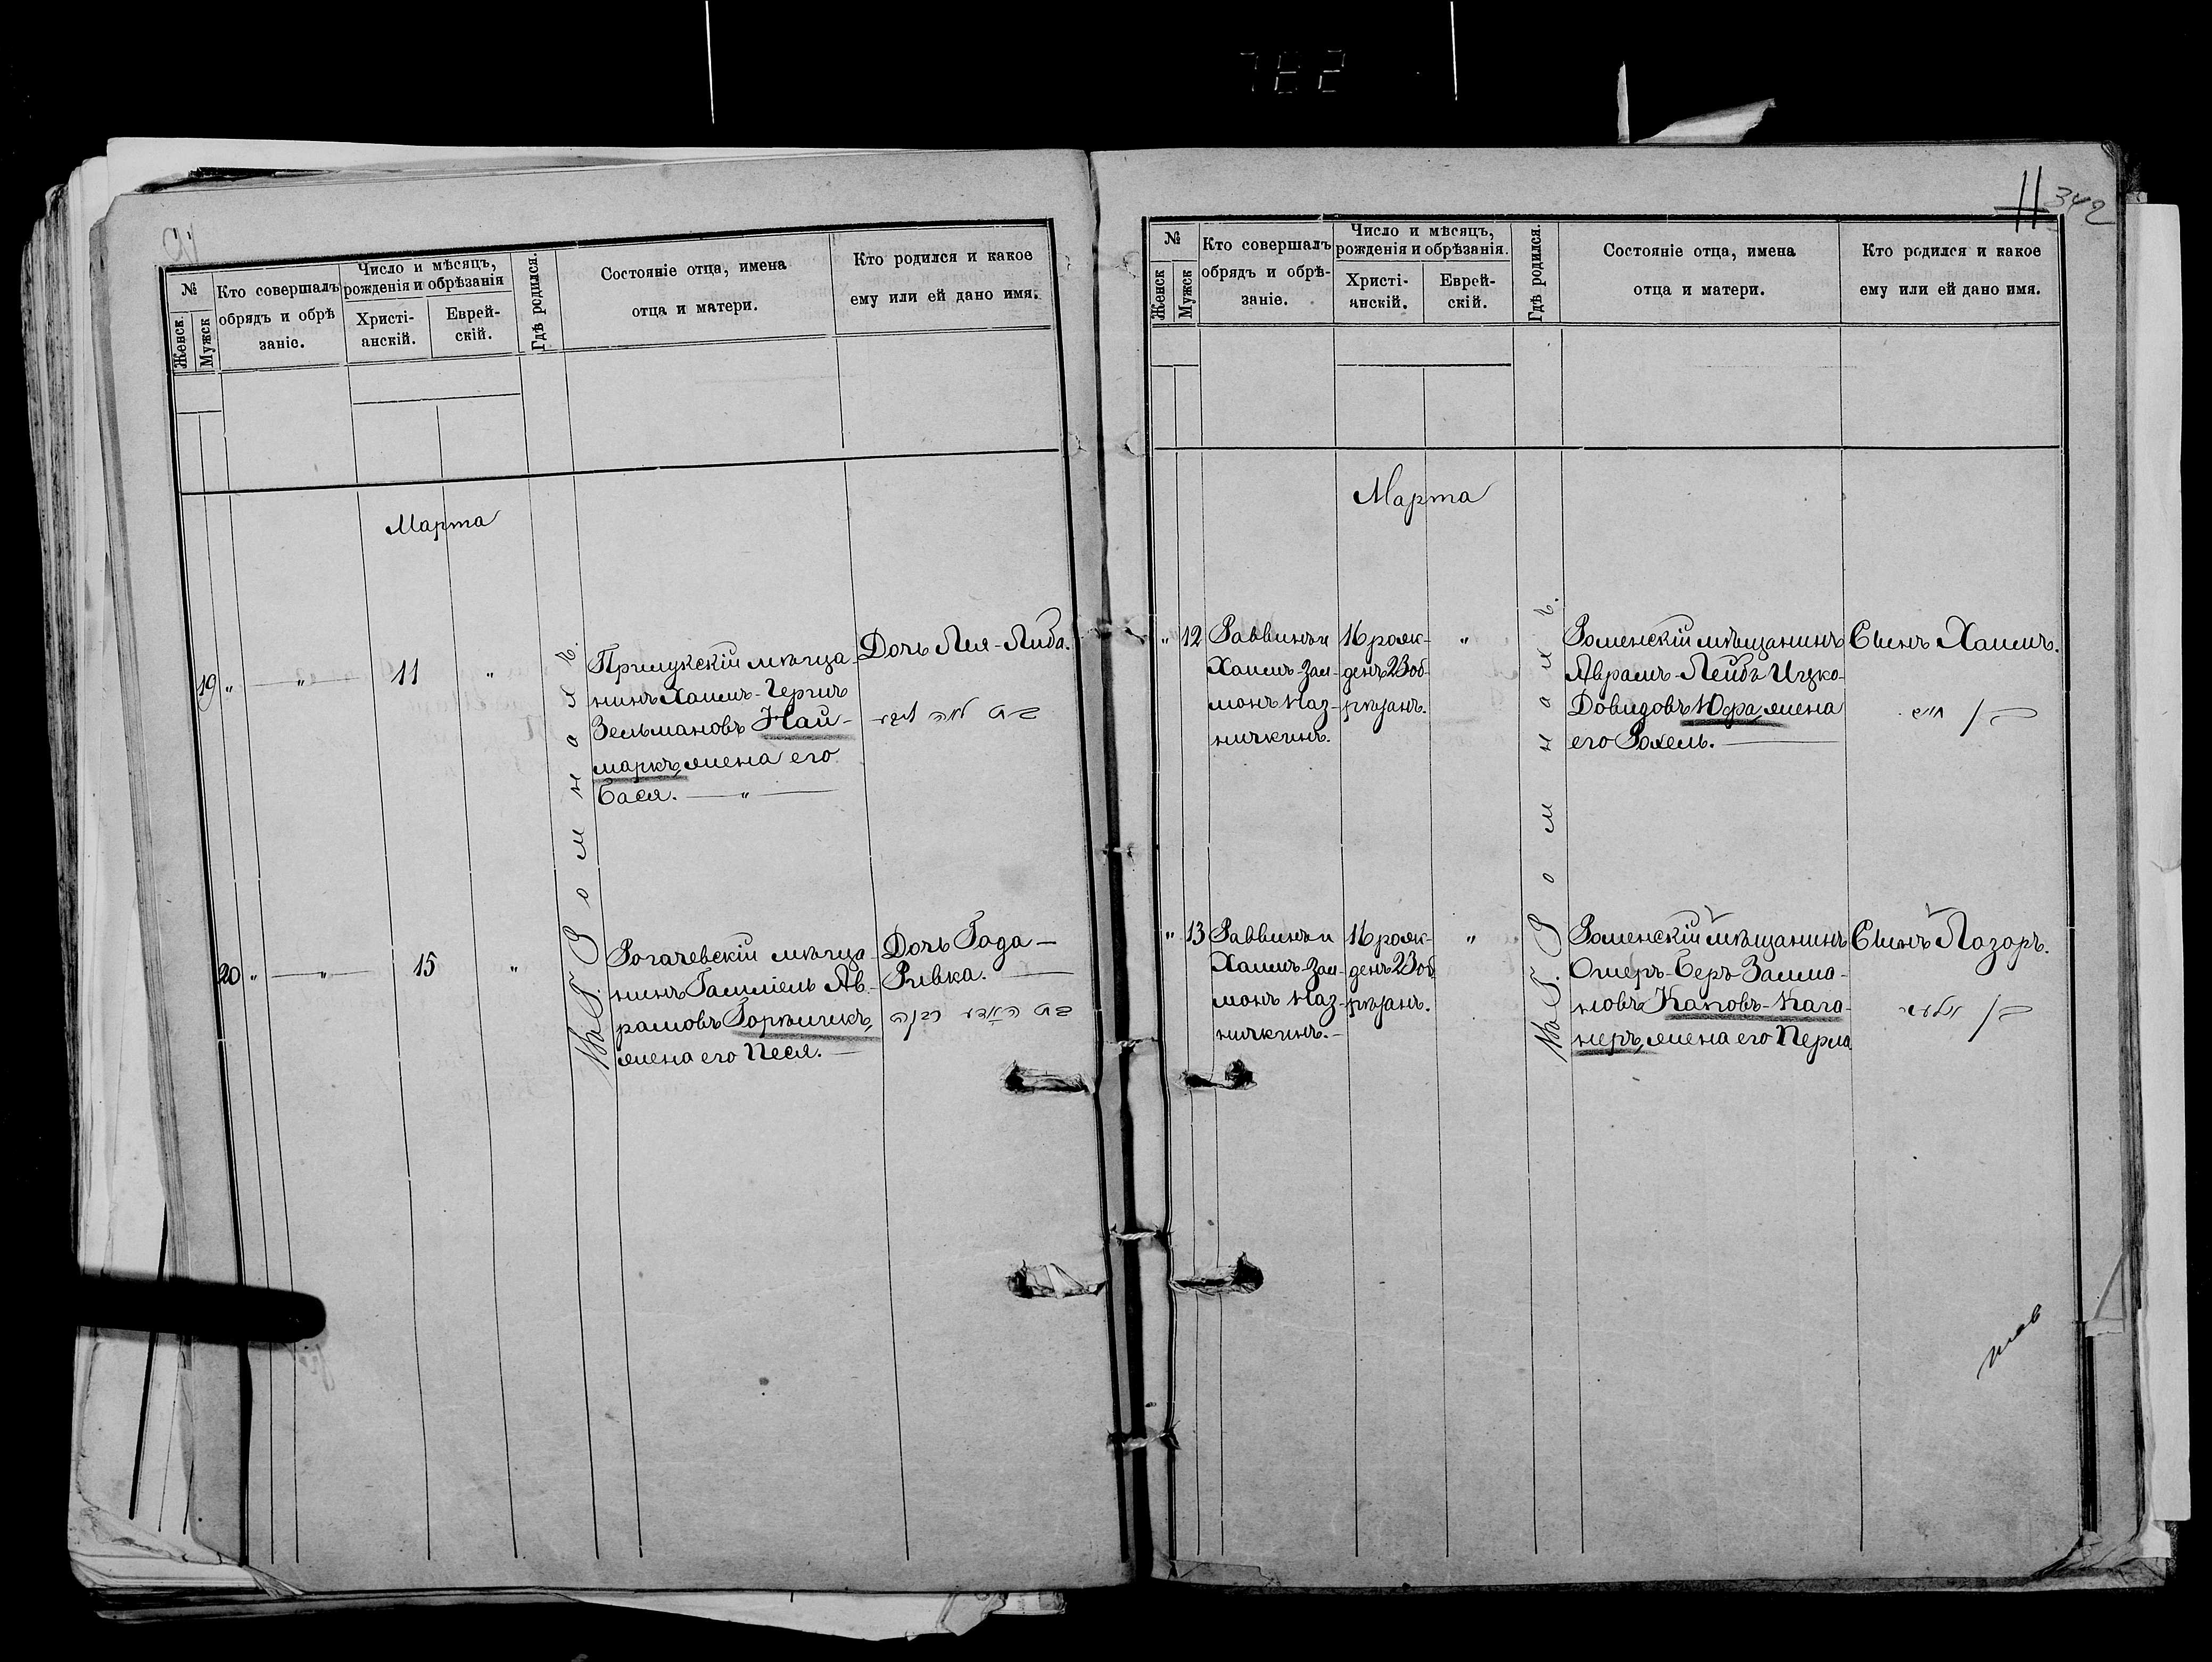 782
№
Женск.
Мужск
Кто совершалъ
обрядъ и обрѣ
заніе.
Число и мѣсяцъ,
рожденія и обрѣзанія
Христі-
анскій.
Еврей-
скій.
Гдѣ родился.
Состояніе отца, имена
отца и матери.
Кто родился и какое
ему или ей дано имя.
Марта
19 " — " — 11 "
Прилукскій мѣща-
нинъ Хаимъ-Герцъ
Зельмановъ Най-
маркъ, жена его
Бася. — " —
Дочь Лея-Либа.
20 " — " — 15 "
Рогачевскій мѣща-
нинъ Гамшіель Ав-
рамовъ Горѣличкъ,
жена его Песя. —
Дочь Года —
Ривка. —
Въ Г. Ромнахъ.
11 342
№
Женск
Мужск
Кто совершалъ
обрядъ и обрѣ-
заніе.
Число и мѣсяцъ,
рожденія и обрѣзанія.
Христі-
анскій.
Еврей-
скій.
Гдѣ родился.
Состояніе отца, имена
отца и матери.
Кто родился и какое
ему или ей дано имя.
Марта
" 12
Раввинъ и
Хаимъ-Зал-
монъ Каз-
ничкинъ.
16 рож-
денъ 23 об-
рѣзанъ.
"
Роменскій мѣщанинъ
Аврамъ-Лейбъ Ицко-
Довидовъ Юфа, жена
его Рохель. —
Сынъ Хаимъ.
" 13
Раввинъ и
Хаимъ-Зал-
монъ Каз-
ничкинъ. —
16 рож-
денъ 23 об
рѣзанъ.
"
Роменскій мѣщанинъ
Ошеръ-Беръ Залма-
новъ Каповъ-Кага-
неръ, жена его Перла
Сынъ Лазоръ.
Въ Г. Ромнахъ.